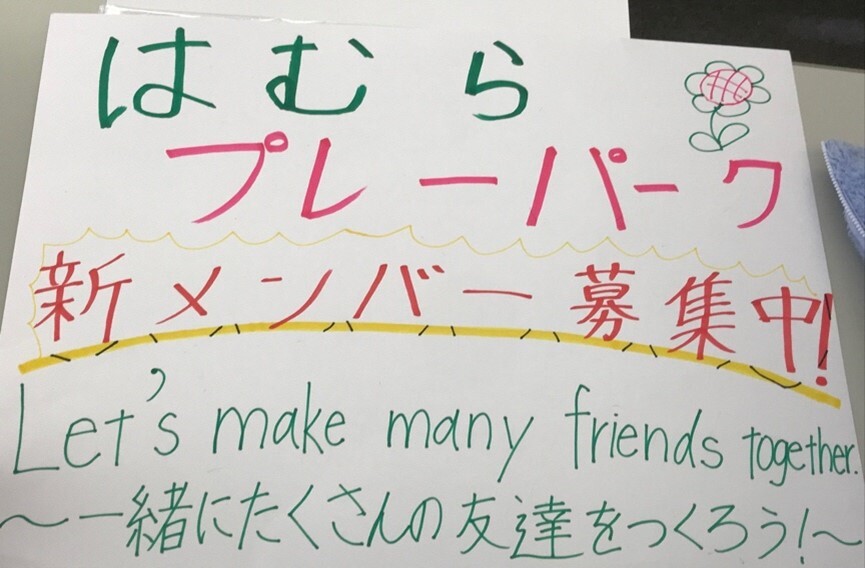 はむら
プレーパーク
新メンバー募集中!
Let's make many friends together.
〜一緒にたくさんの友達をつくろう!〜